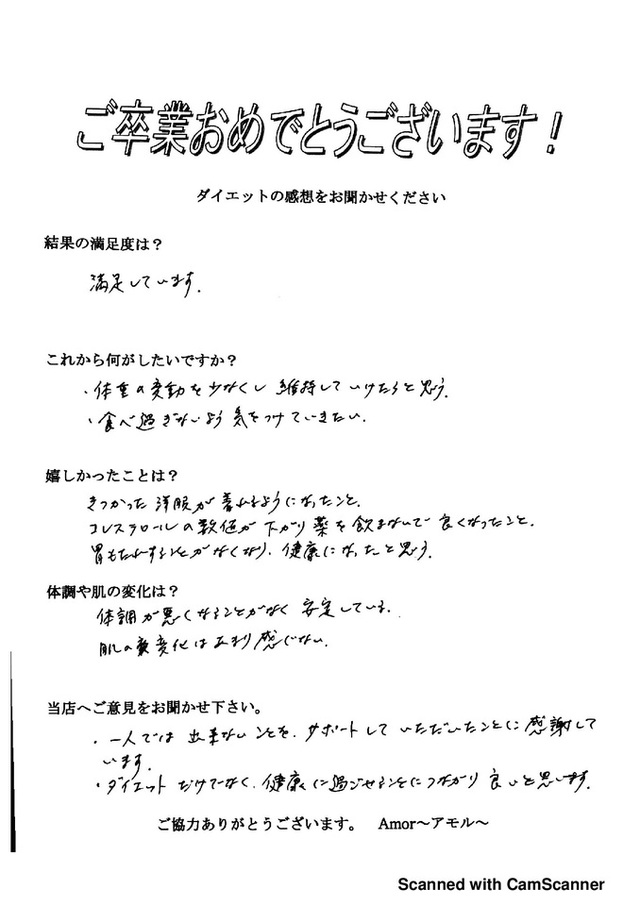 ご卒業おめでとうございます！
ダイエットの感想をお聞かせください
結果の満足度は？
満足しています.
これから何がしたいですか？
・体重の変動を少なくし 維持していけたらと思う.
・食べ過ぎないよう 気をつけていきたい.
嬉しかったことは？
きつかった 洋服が 着れるようになったこと.
コレステロールの数値が 下がり 薬を飲まないで 良くなったこと.
胃もたれすることがなくなり. 健康になったと思う.
体調や肌の変化は？
体調が悪くなることがなく 安定している.
肌の変化はあまり感じない.
当店へご意見をお聞かせ下さい。
・一人では 出来ないことを. サポートして いただいたことに感謝して
います.
・ダイエットだけでなく. 健康に過ごせることにつながり 良いと思います.
ご協力ありがとうございます。 Amor～アモル～
Scanned with CamScanner